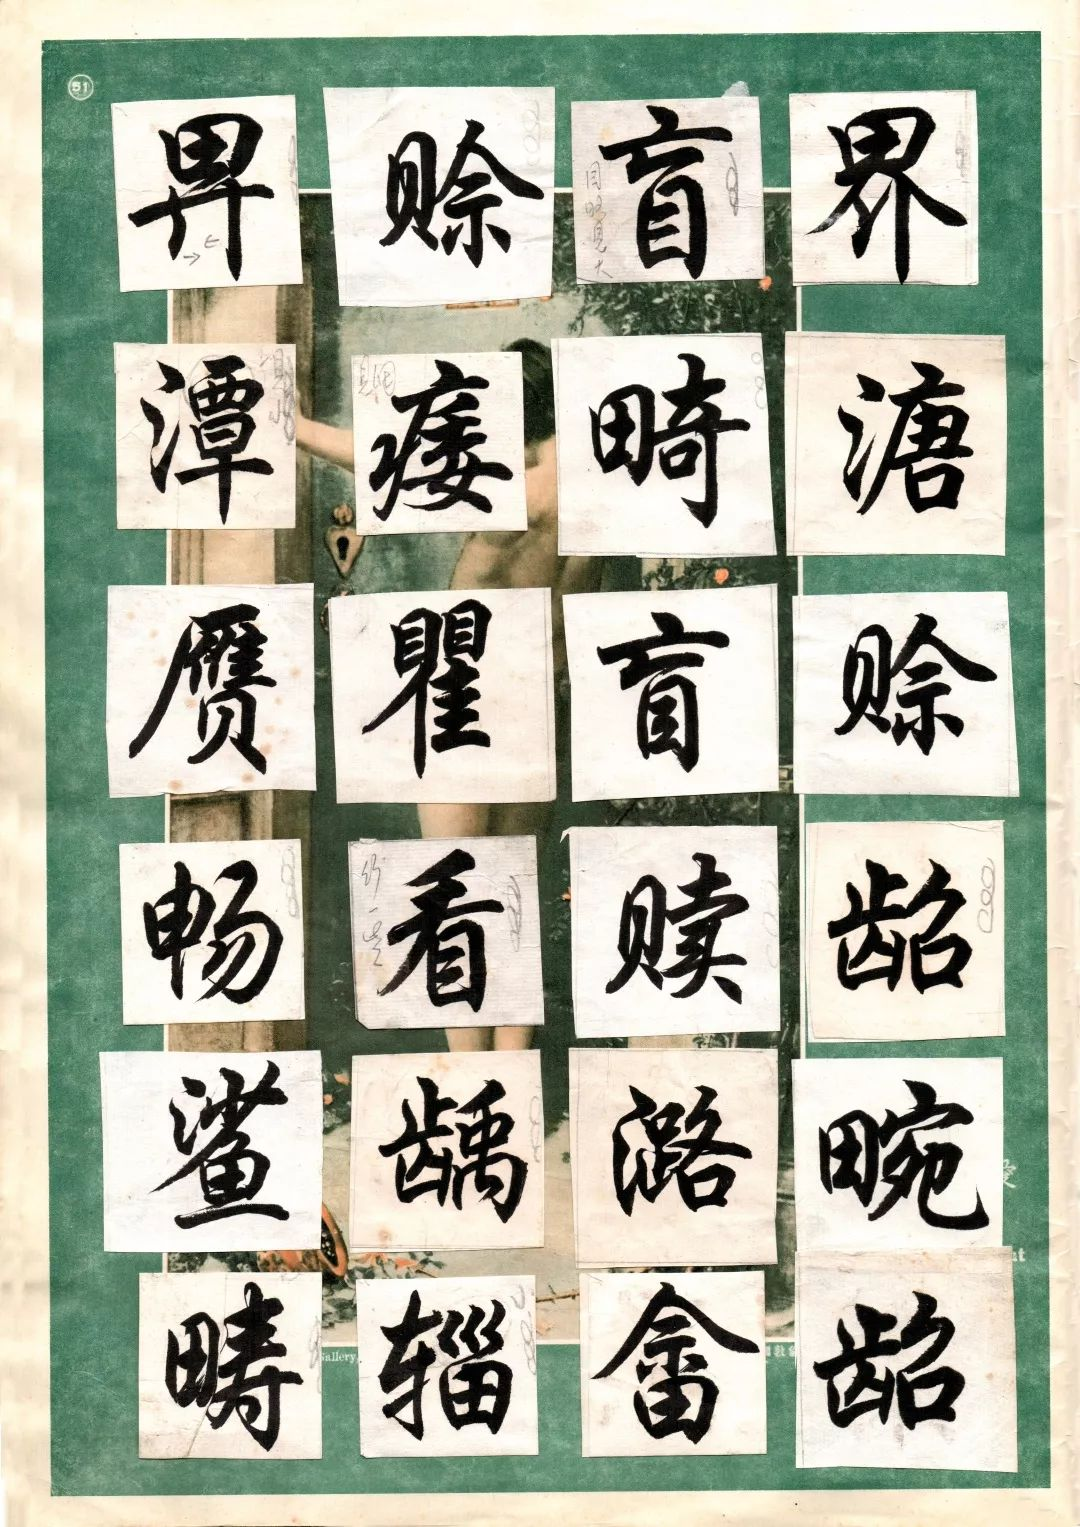 51
畀 赊 盲 界
潭 痿 畸 溏
赝 瞿 盲 赊
畅 看 赎 龆
鲨 龋 潞 畹
畴 辎 畲 龆